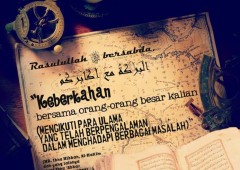 Rasulullah ﷺ bersabda..
البركة مع أكابركم
"Keberkahan
bersama orang-orang besar kalian
(MENGIKUTI PARA ULAMA
YANG TELAH BERPENGALAMAN
DALAM MENGHADAPI BERBAGAI MASALAH)"
(HR. Ibnu Hibban, Al-Hakim